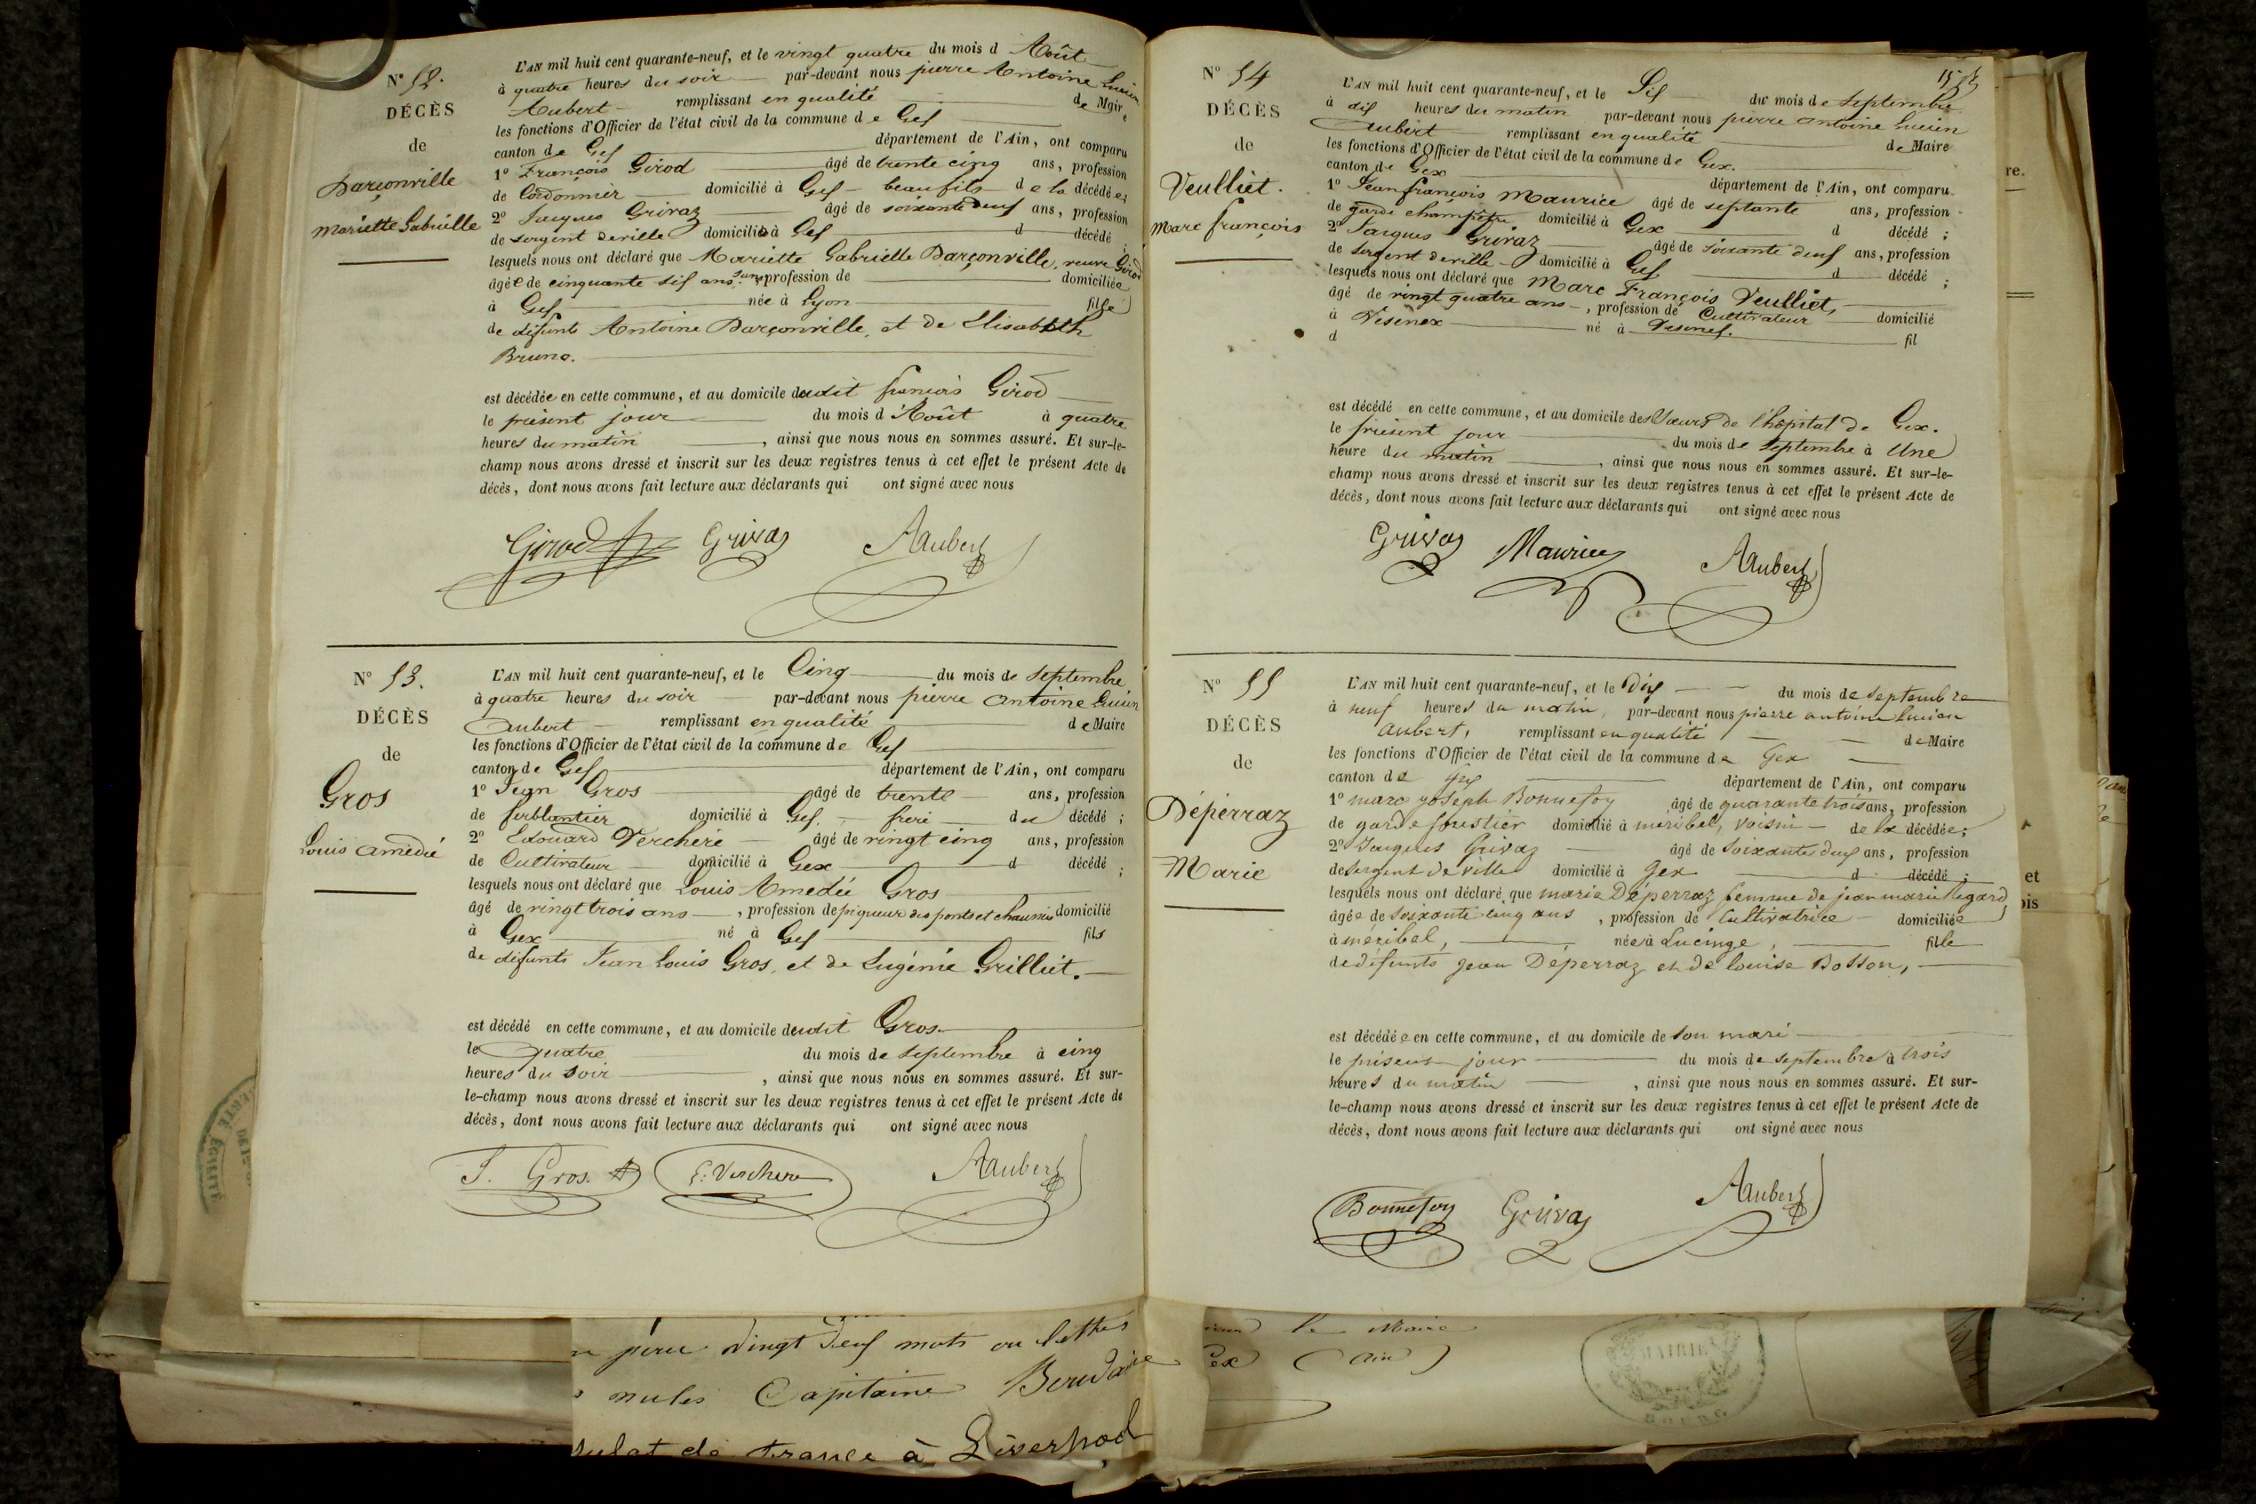 N° 52.
DÉCÈS
de
Darçonville
Mariette Gabrielle
L'AN mil huit cent quarante-neuf, et le vingt quatre du mois d'Août
à quatre heures du soir par-devant nous pierre Antoine Lucien
Aubert remplissant en qualité de Maire
les fonctions d'Officier de l'état civil de la commune de Gex
canton de Gex département de l'Ain, ont comparu
1° François Girod âgé de trente cinq ans, profession
de Cordonnier domicilié à Gex beaufils de la décédée;
2° Jacques Grivaz âgé de soixante deux ans, profession
de sergent de ville domicilié à Gex d décédé ;
lesquels nous ont déclaré que Mariette Gabrielle Darçonville, veuve Girod
âgée de cinquante six ans, sans profession de domiciliée
à Gex née à Lyon fille
de défunts Antoine Darçonville, et de Elisabeth
Bruno.
est décédée en cette commune, et au domicile dudit françois Girod
le présent jour du mois d'Août à quatre
heures du matin , ainsi que nous nous en sommes assuré. Et sur-le-
champ nous avons dressé et inscrit sur les deux registres tenus à cet effet le présent Acte de
décès, dont nous avons fait lecture aux déclarants qui ont signé avec nous
Girod Grivaz AAubert
N° 53.
DÉCÈS
de
Gros
Louis Amédée
L'AN mil huit cent quarante-neuf, et le Cinq du mois de septembre
à quatre heures du soir par-devant nous pierre Antoine Lucien
Aubert remplissant en qualité de Maire
les fonctions d'Officier de l'état civil de la commune de Gex
canton de Gex département de l'Ain, ont comparu
1° Jean Gros âgé de trente ans, profession
de ferblantier domicilié à Gex. frère du décédé ;
2° Edouard Verchère âgé de vingt cinq ans, profession
de Cultivateur domicilié à Gex d décédé ;
lesquels nous ont déclaré que Louis Amédée Gros
âgé de vingt trois ans , profession de piqueur des ponts et chaussées domicilié
à Gex né à Gex fils
de défunts Jean Louis Gros, et de Eugénie Grilliet.
est décédé en cette commune, et au domicile dudit Gros
le quatre du mois de septembre à cinq
heures du soir , ainsi que nous nous en sommes assuré. Et sur-
le-champ nous avons dressé et inscrit sur les deux registres tenus à cet effet le présent Acte de
décès, dont nous avons fait lecture aux déclarants qui ont signé avec nous
J. Gros E. Verchere AAubert
N° 54
DÉCÈS
de
Veulliet.
Marc françois
L'AN mil huit cent quarante-neuf, et le Six du mois de septembre
à dix heures du matin par-devant nous pierre Antoine Lucien
Aubert remplissant en qualité de Maire
les fonctions d'Officier de l'état civil de la commune de Gex.
canton de Gex département de l'Ain, ont comparu
1° Jean françois Maurice âgé de septante ans, profession
de garde champêtre domicilié à Gex d décédé ;
2° Jacques Grivaz âgé de soixante deux ans, profession
de sergent de ville domicilié à Gex d décédé ;
lesquels nous ont déclaré que Marc François Veulliet,
âgé de vingt quatre ans , profession de Cultivateur domicilié
à Vesenex né à Vesenex. fil
d
est décédé en cette commune, et au domicile des Sœurs de l'hôpital de Gex.
le présent jour du mois de septembre à Une
heure du matin , ainsi que nous nous en sommes assuré. Et sur-le-
champ nous avons dressé et inscrit sur les deux registres tenus à cet effet le présent Acte de
décès, dont nous avons fait lecture aux déclarants qui ont signé avec nous
Grivaz Maurice AAubert
N° 55
DÉCÈS
de
Déperraz
Marie
L'AN mil huit cent quarante-neuf, et le Dix du mois de septembre
à neuf heures du matin, par-devant nous pierre antoine lucien
aubert, remplissant en qualité de Maire
les fonctions d'Officier de l'état civil de la commune de Gex
canton de Gex département de l'Ain, ont comparu
1° marc joseph Bonnefoy âgé de quarante trois ans, profession
de garde forestier domicilié à méribel, voisin de la décédée;
2° Jacques Grivaz âgé de soixante deux ans, profession
de sergent de ville domicilié à Gex d décédé ;
lesquels nous ont déclaré que marie Déperraz femme de jean marie Regard
âgée de soixante cinq ans , profession de Cultivatrice domiciliée
à méribel, née à Lucinge, fille
de défunts jean Déperraz et de louise Bosson,
est décédée en cette commune, et au domicile de son mari
le présent jour du mois de septembre à trois
heures du matin , ainsi que nous nous en sommes assuré. Et sur-
le-champ nous avons dressé et inscrit sur les deux registres tenus à cet effet le présent Acte de
décès, dont nous avons fait lecture aux déclarants qui ont signé avec nous
Bonnefoy Grivaz AAubert
re.
et
ois
vingt deux mots ou lettres
nuls Capitaine
de France à Liverpool
Maire
Gex (Ain)
MAIRIE